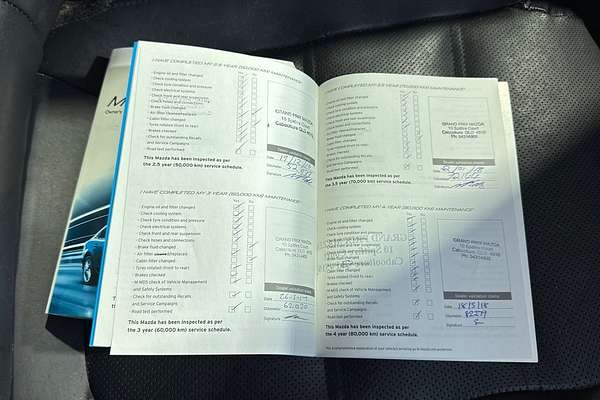 I HAVE COMPLETED MY 2.5 YEAR (50,000 KM) MAINTENANCE
- Engine oil and filter changed
- Check cooling system
- Check tyre condition and pressure
- Check electrical systems
- Check front and rear suspension
- Check hoses and connections
- Brake fluid changed
- Air filter cleaned/replaced
- Cabin filter changed
- Tyres rotated (front to rear)
- Brakes checked
- Check for outstanding Recalls
and Service Campaigns
- Road test performed
This Mazda has been inspected as per
the 2.5 year (50,000 km) service schedule.
GRAND PRIX MAZDA
10 Spitfire Court
Caboolture QLD 4510
Date
Odometer
Signature
I HAVE COMPLETED MY 3 YEAR (60,000 KM) MAINTENANCE
Yes No
- Engine oil and filter changed
- Check cooling system
- Check tyre condition and pressure
- Check electrical systems
- Check front and rear suspension
- Check hoses and connections
- Brake fluid changed
- Air filter cleaned/replaced
- Cabin filter changed
- Tyres rotated (front to rear)
- Brakes checked
- M-MDS check of Vehicle Management
and Safety Systems
- Check for outstanding Recalls
and Service Campaigns
- Road test performed
This Mazda has been inspected as per
the 3 year (60,000 km) service schedule.
GRAND PRIX MAZDA
10 Spitfire Court
Caboolture QLD 4510
Dealer validation stamp
Date
Odometer
Signature
I HAVE COMPLETED MY 3.5 YEAR (70,000 KM) MAINTENANCE
- Engine oil and filter changed
- Check cooling system
- Check tyre condition and pressure
- Check electrical systems
- Check front and rear suspension
- Check hoses and connections
- Brake fluid changed
- Air filter cleaned/replaced
- Cabin filter changed
- Tyres rotated (front to rear)
- Brakes checked
- Check for outstanding Recalls
and Service Campaigns
- Road test performed
This Mazda has been inspected as per
the 3.5 year (70,000 km) service schedule.
GRAND PRIX MAZDA
10 Spitfire Court
Caboolture QLD 4510
Dealer validation stamp
Date
Odometer
Signature
I HAVE COMPLETED MY 4 YEAR (80,000 KM) MAINTENANCE
- Engine oil and filter changed
- Check cooling system
- Check tyre condition and pressure
- Check electrical systems
- Check front and rear suspension
- Check hoses and connections
- Brake fluid changed
- Air filter cleaned/replaced
- Cabin filter changed
- Tyres rotated (front to rear)
- Brakes checked
- M-MDS check of Vehicle Management
and Safety Systems
- Check for outstanding Recalls
and Service Campaigns
- Road test performed
This Mazda has been inspected as per
the 4 year (80,000 km) service schedule.
GRAND PRIX MAZDA
10 Spitfire Court
Caboolture QLD 4510
Dealer validation stamp
Date 18/5/18
Odometer
Signature